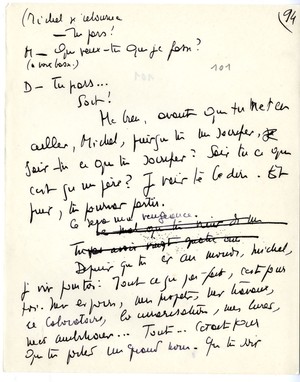 (Michel se retourne
94
— Tu pars !
M — Que veux-tu que je fasse ?
(à voix basse)
101
D — Tu pars...
Soit !
avant que tu
ailler, Michel, puisque tu me soupçonnes,
Sais-tu ce que tu ? Sais-tu ce que
c'est qu'un père ? Je vais te le dire. Et
puis, tu pourras partir.
Ce sera ma vengeance.
Depuis que tu es au monde, Michel,
je vis pour toi : Tout ce que j'ai fait, c'est pour
toi. Mes espoirs, mes projets, mes travaux,
ce laboratoire, mes livres,
mes ambitions... Tout... C'était pour
que tu portes un grand nom. Que tu sois